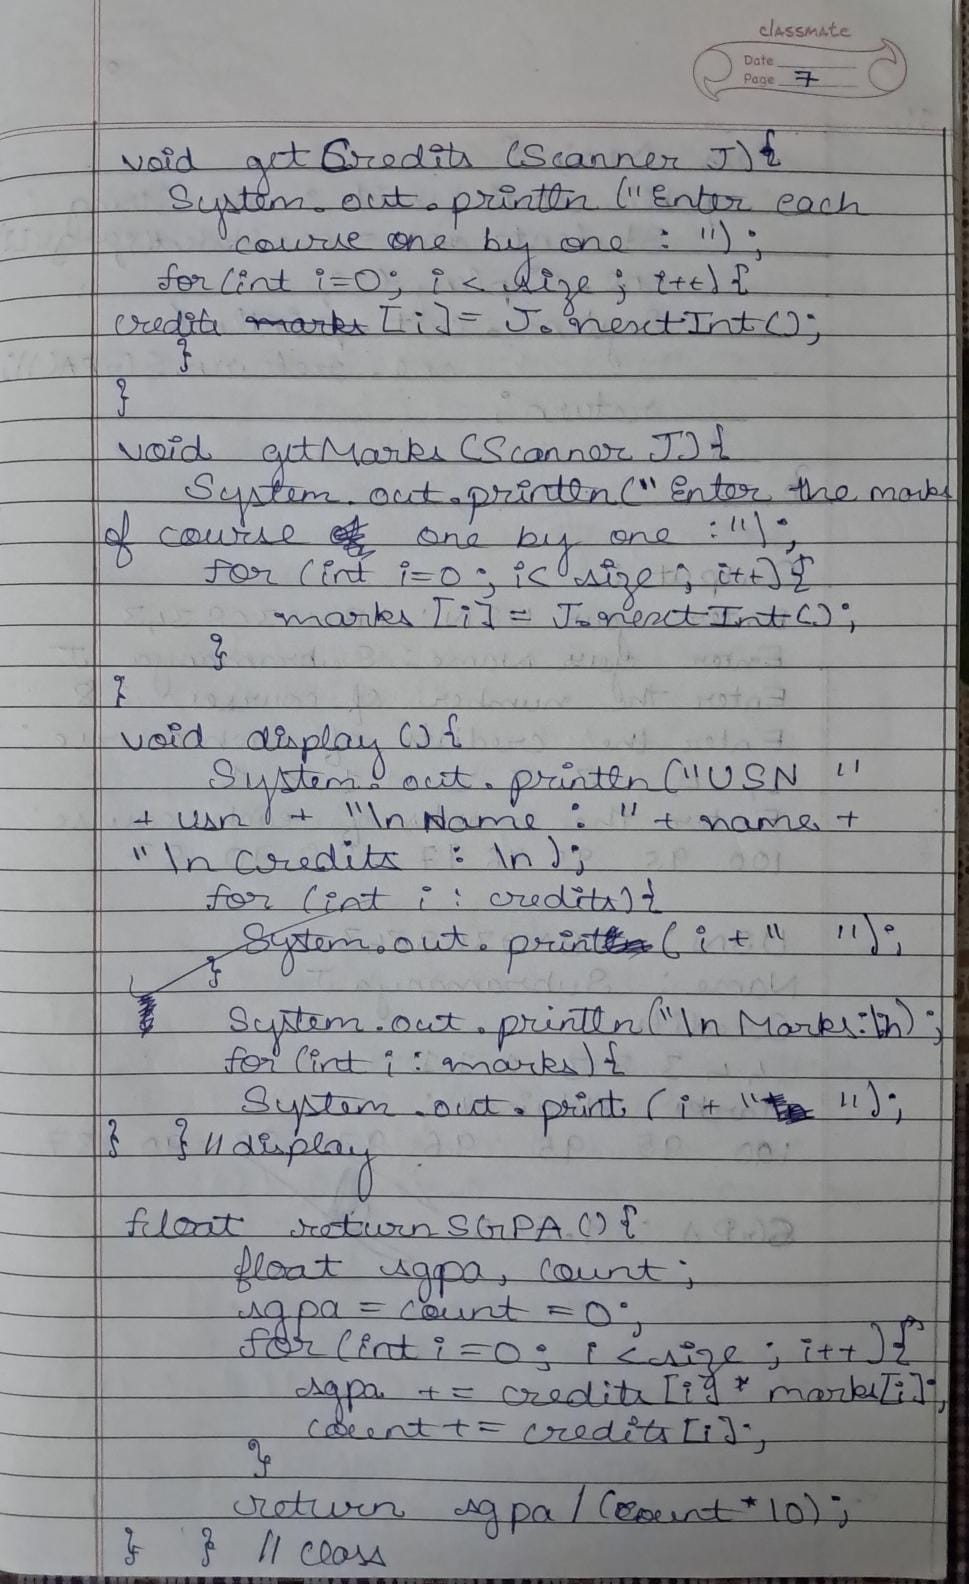 classmate
Date
Page 7
void getCredits (Scanner J){
System.out.println ("Enter each
course one by one : ");
for(int i=0; i < size ; i++) {
credits [i] = J.nextInt();
}
}
void getMarks (Scanner J){
System.out.println(" Enter the marks
of course one by one :");
for (int i=0 ; i< size ; i++) {
marks [i] = J.nextInt();
}
}
void display () {
System.out.println ("USN "
+ usn + "\n Name : " + name +
"\n Credits : \n );
for (int i : credits) {
System.out.print ( i + " ");
}
System.out.println ("\n Marks:\n) ;
for (int i : marks) {
System.out.print ( i + " ");
} } // display
float returnSGPA () {
float sgpa, count ;
sgpa = count = 0 ;
for (int i = 0 ; i < size ; i++ ) {
sgpa += credits [i] * marks[i];
count += credits [i];
}
return sgpa / (count * 10) ;
} } // class